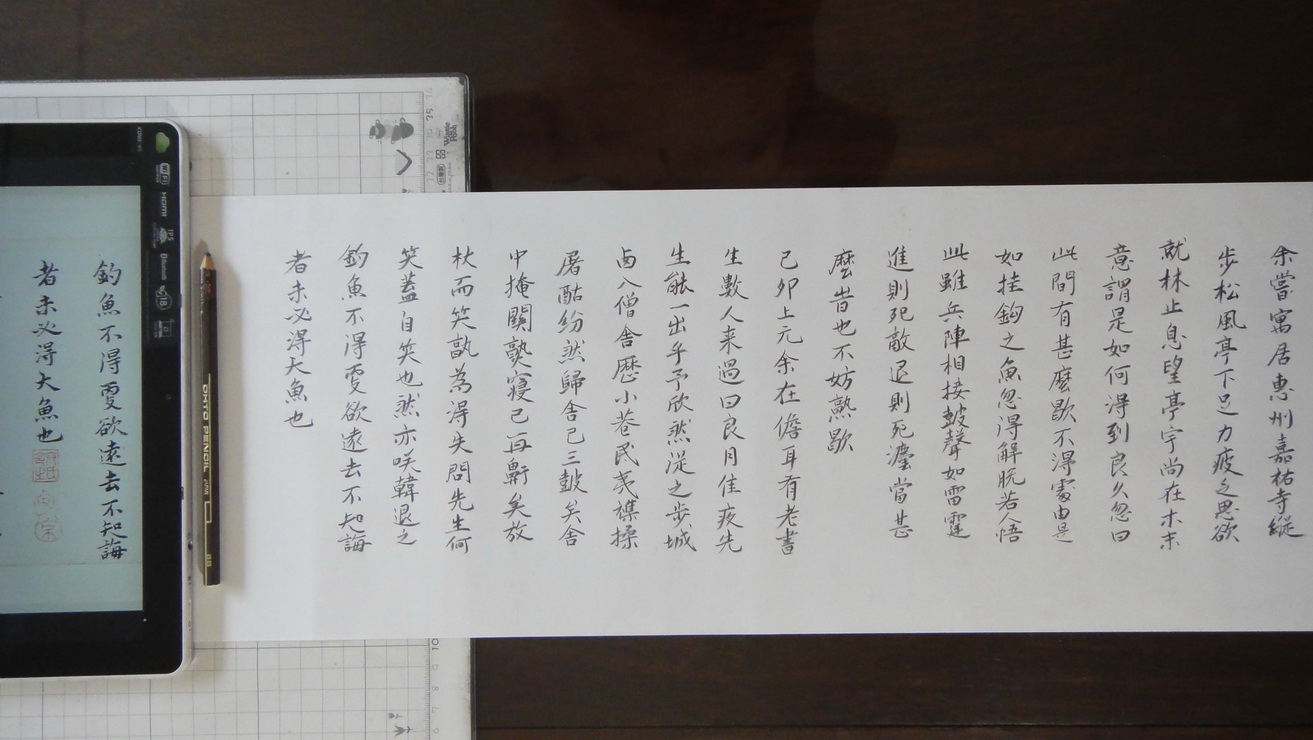 余嘗寓居惠州嘉祐寺縱
步松風亭下足力疲乏思欲
就林止息望亭宇尚在木末
意謂是如何得到良久忽曰
此間有甚麼歇不得處由是
如挂鉤之魚忽得解脫若人悟
此雖兵陣相接鼓聲如雷霆
進則死敵退則死灋當甚
麼旹也不妨熟歇
己卯上元余在儋耳有老書
生數人来過曰良月佳夜先
生能一出乎予欣然從之步城
西入僧舍歷小巷民夷雜揉
屠酤紛然歸舍已三鼓矣舍
中掩關熟寢已再鼾矣放
杖而笑孰為得失問先生何
笑蓋自笑也然亦咲韓退之
釣魚不得更欲遠去不知誨
者未必得大魚也
釣魚不得更欲遠去不知誨
者未必得大魚也
WiFi
HDMI
IPS
Bluetooth
OHTO PENCIL